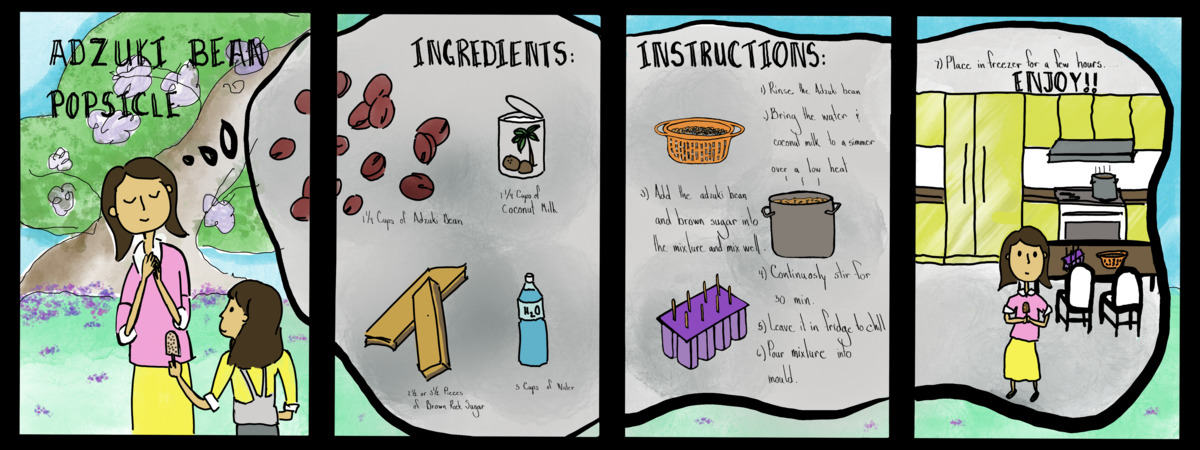 ADZUKI BEAN
POPSICLE
INGREDIENTS:
1 1/2 Cups of Adzuki Bean
1 1/2 Cups of
Coconut Milk
Pieces
of Brown Rock Sugar
H2O
5 Cups of Water
INSTRUCTIONS:
1) Rinse the Adzuki bean
2) Bring the water &
coconut milk to a simmer
over a low heat
3) Add the adzuki bean
and brown sugar into
the mixture and mix well.
4) Continuosly stir for
30 min.
5) Leave it in fridge to chill
6) Pour mixture into
mould.
7) Place in freezer for a few hours.
ENJOY!!